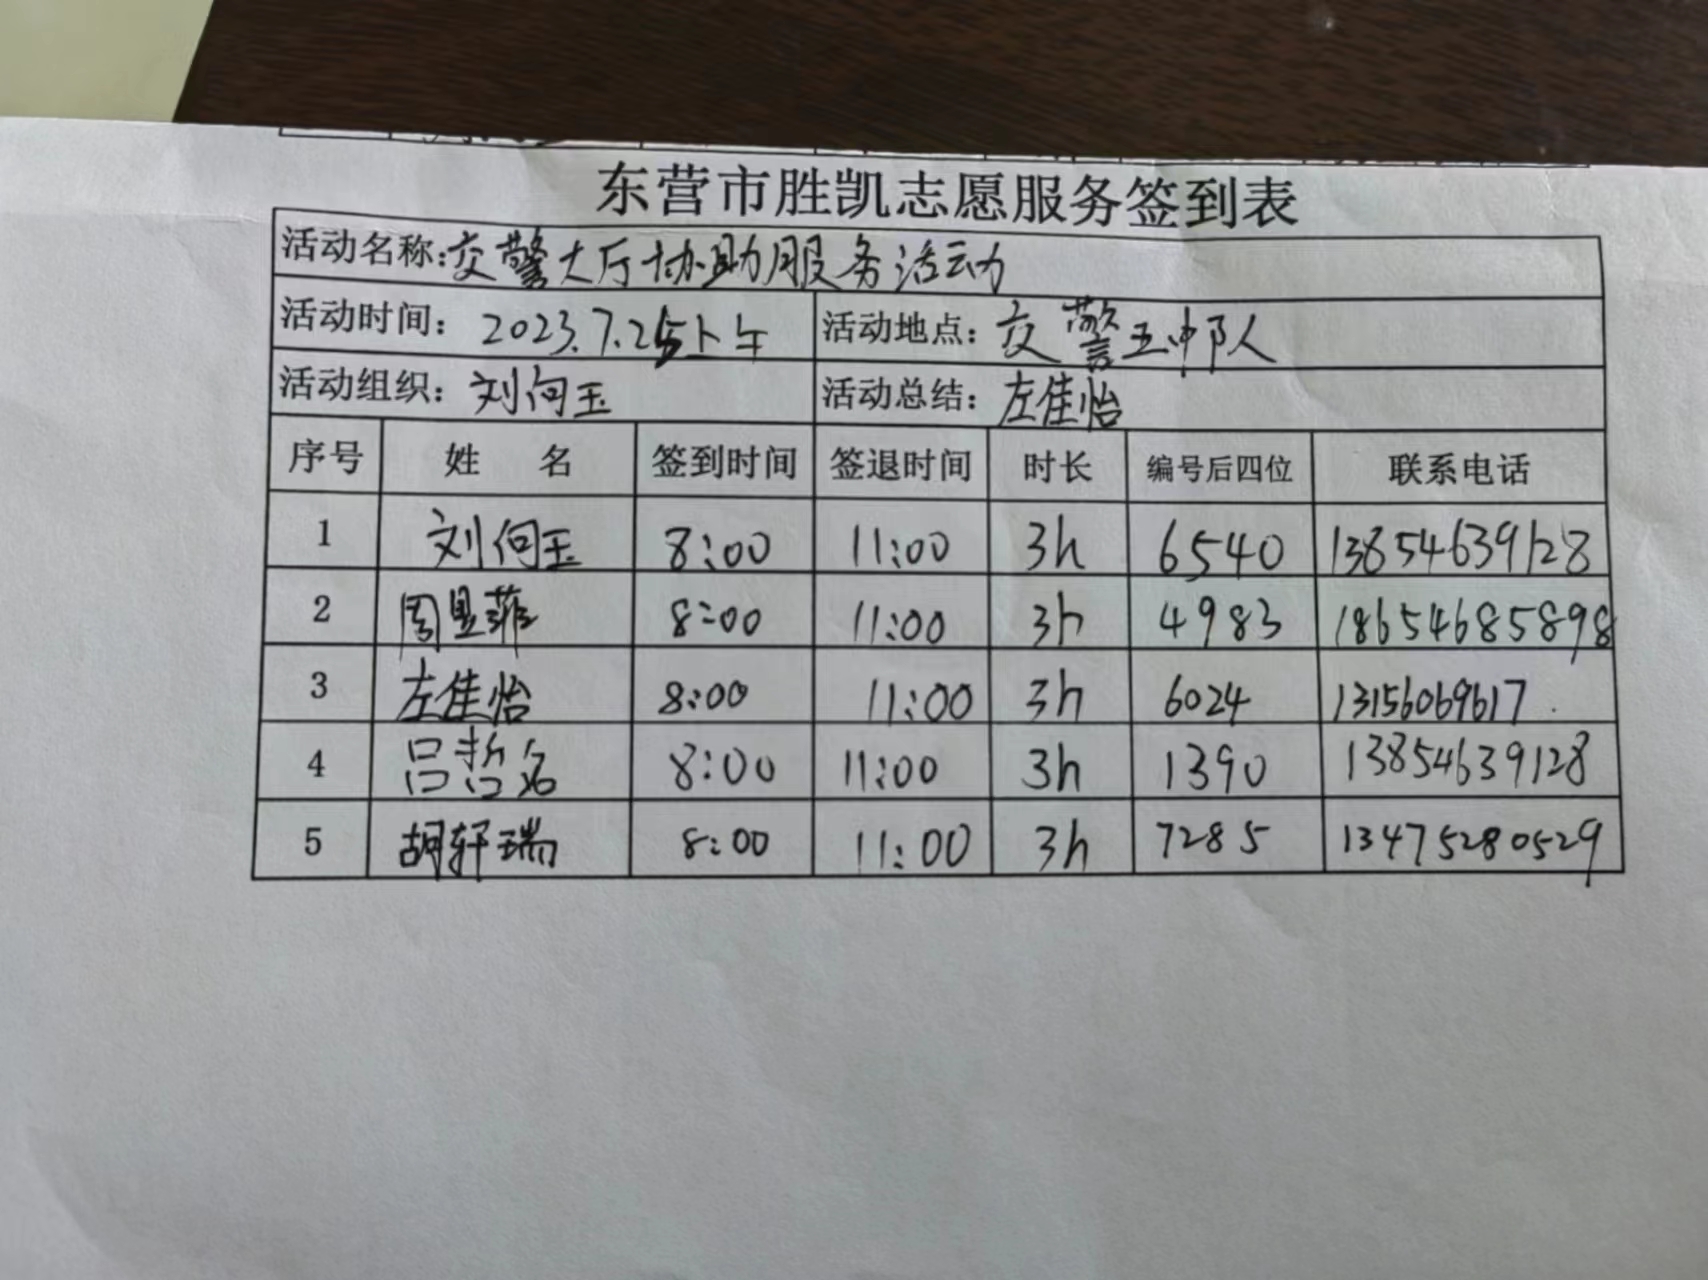 东营市胜凯志愿服务签到表
活动名称:交警大厅协助服务活动
活动时间: 2023.7.25上午 活动地点: 交警五中队
活动组织: 刘向玉 活动总结: 左佳怡
序号 姓 名 签到时间 签退时间 时长 编号后四位 联系电话
1 刘向玉 8:00 11:00 3h 6540 13854639128
2 周昱菲 8:00 11:00 3h 4983 18654685898
3 左佳怡 8:00 11:00 3h 6024 13156069617
4 吕哲名 8:00 11:00 3h 1390 13854639128
5 胡轩瑞 8:00 11:00 3h 7285 13475280529